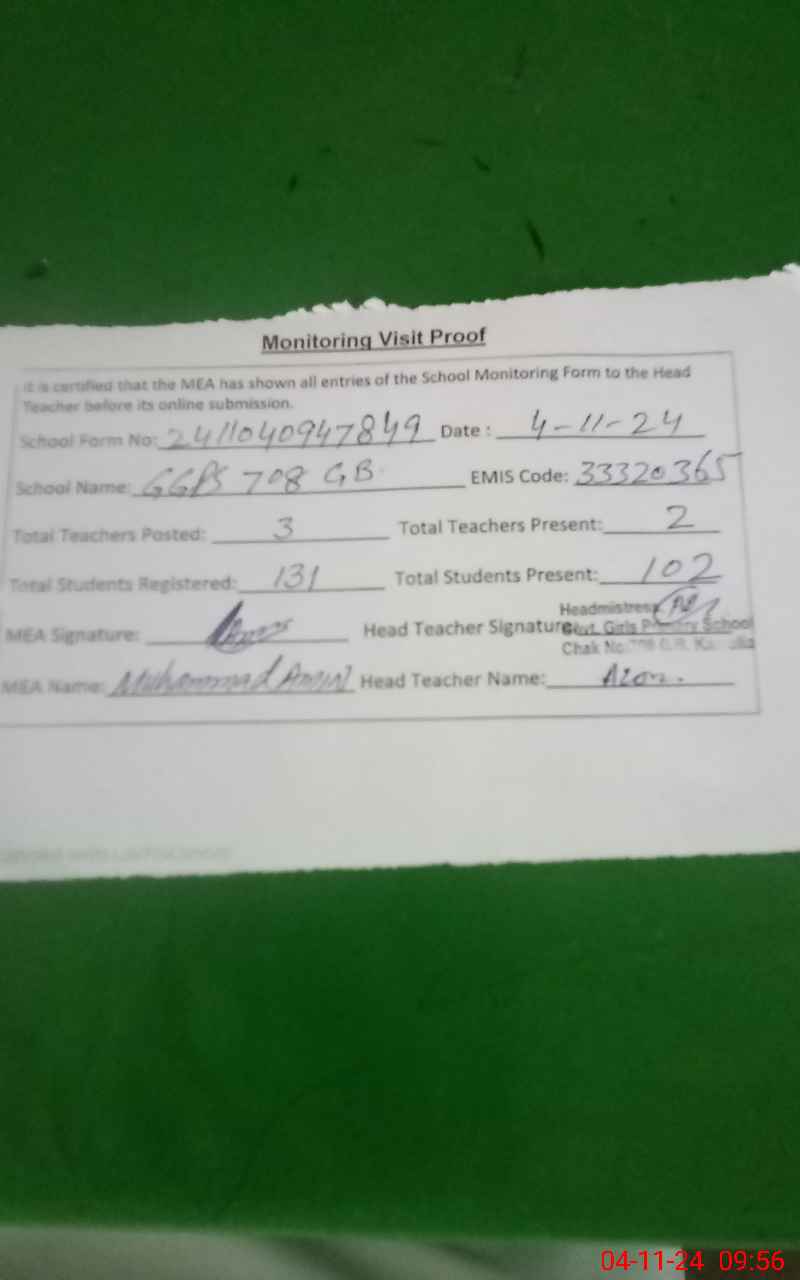 Monitoring Visit Proof
It is certified that the MEA has shown all entries of the School Monitoring Form to the Head
Teacher before its online submission.
School Form No: 2411040947849 Date : 4-11-24
School Name: GGPS 708 GB EMIS Code: 33320365
Total Teachers Posted: 3 Total Teachers Present: 2
Total Students Registered: 131 Total Students Present: 102
Headmistress
MEA Signature: Head Teacher Signature: Govt. Girls Primary School
Chak No. 708 G.B.
MEA Name: Muhammad Amin Head Teacher Name:
04-11-24 09:56